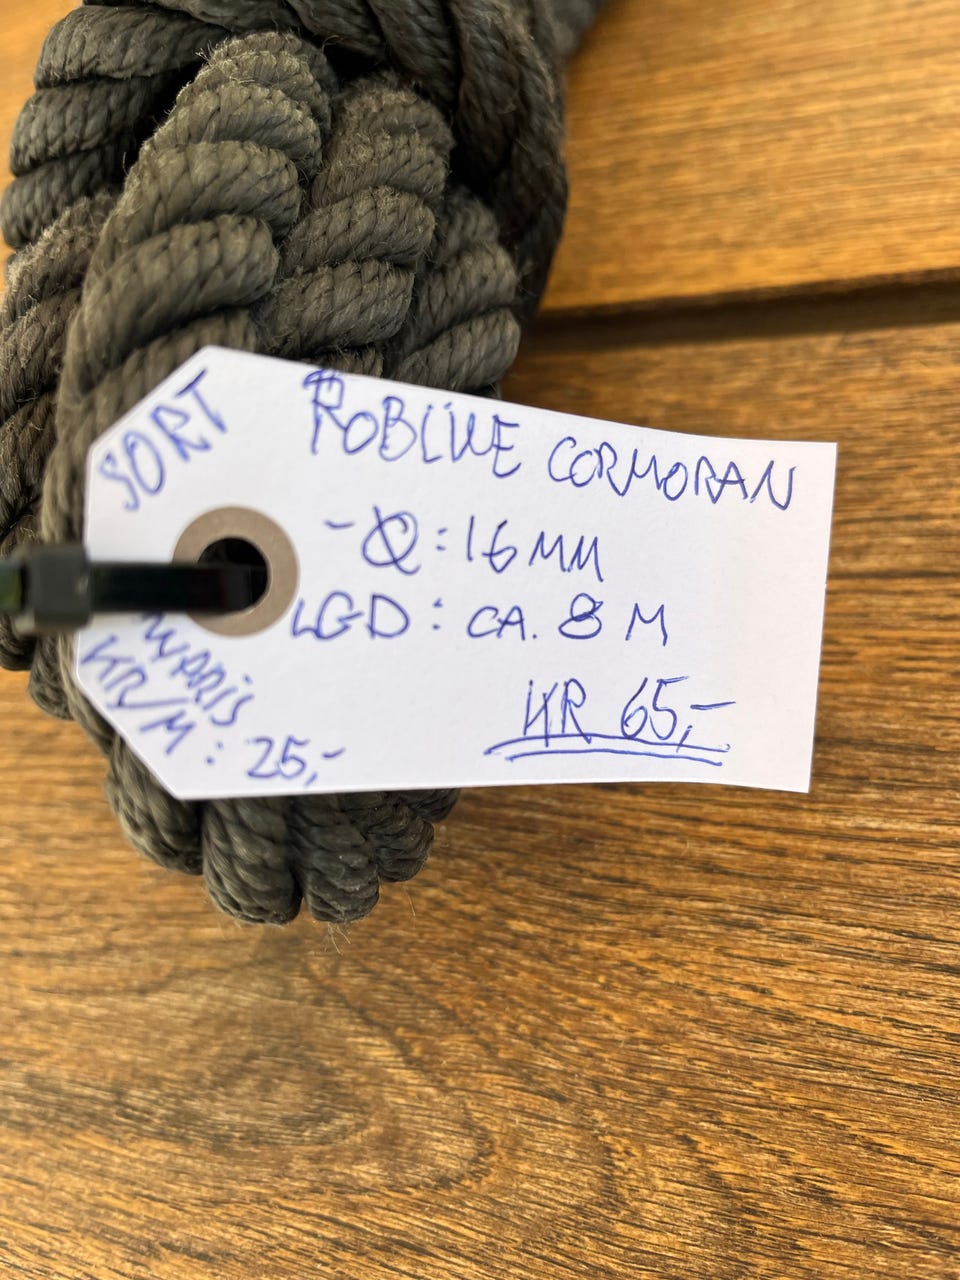 SORT
ROBLINE CORMORAN
-Ø: 16 MM
LGD: CA. 8 M
KR 65,-
NYPRIS
KR/M: 25,-